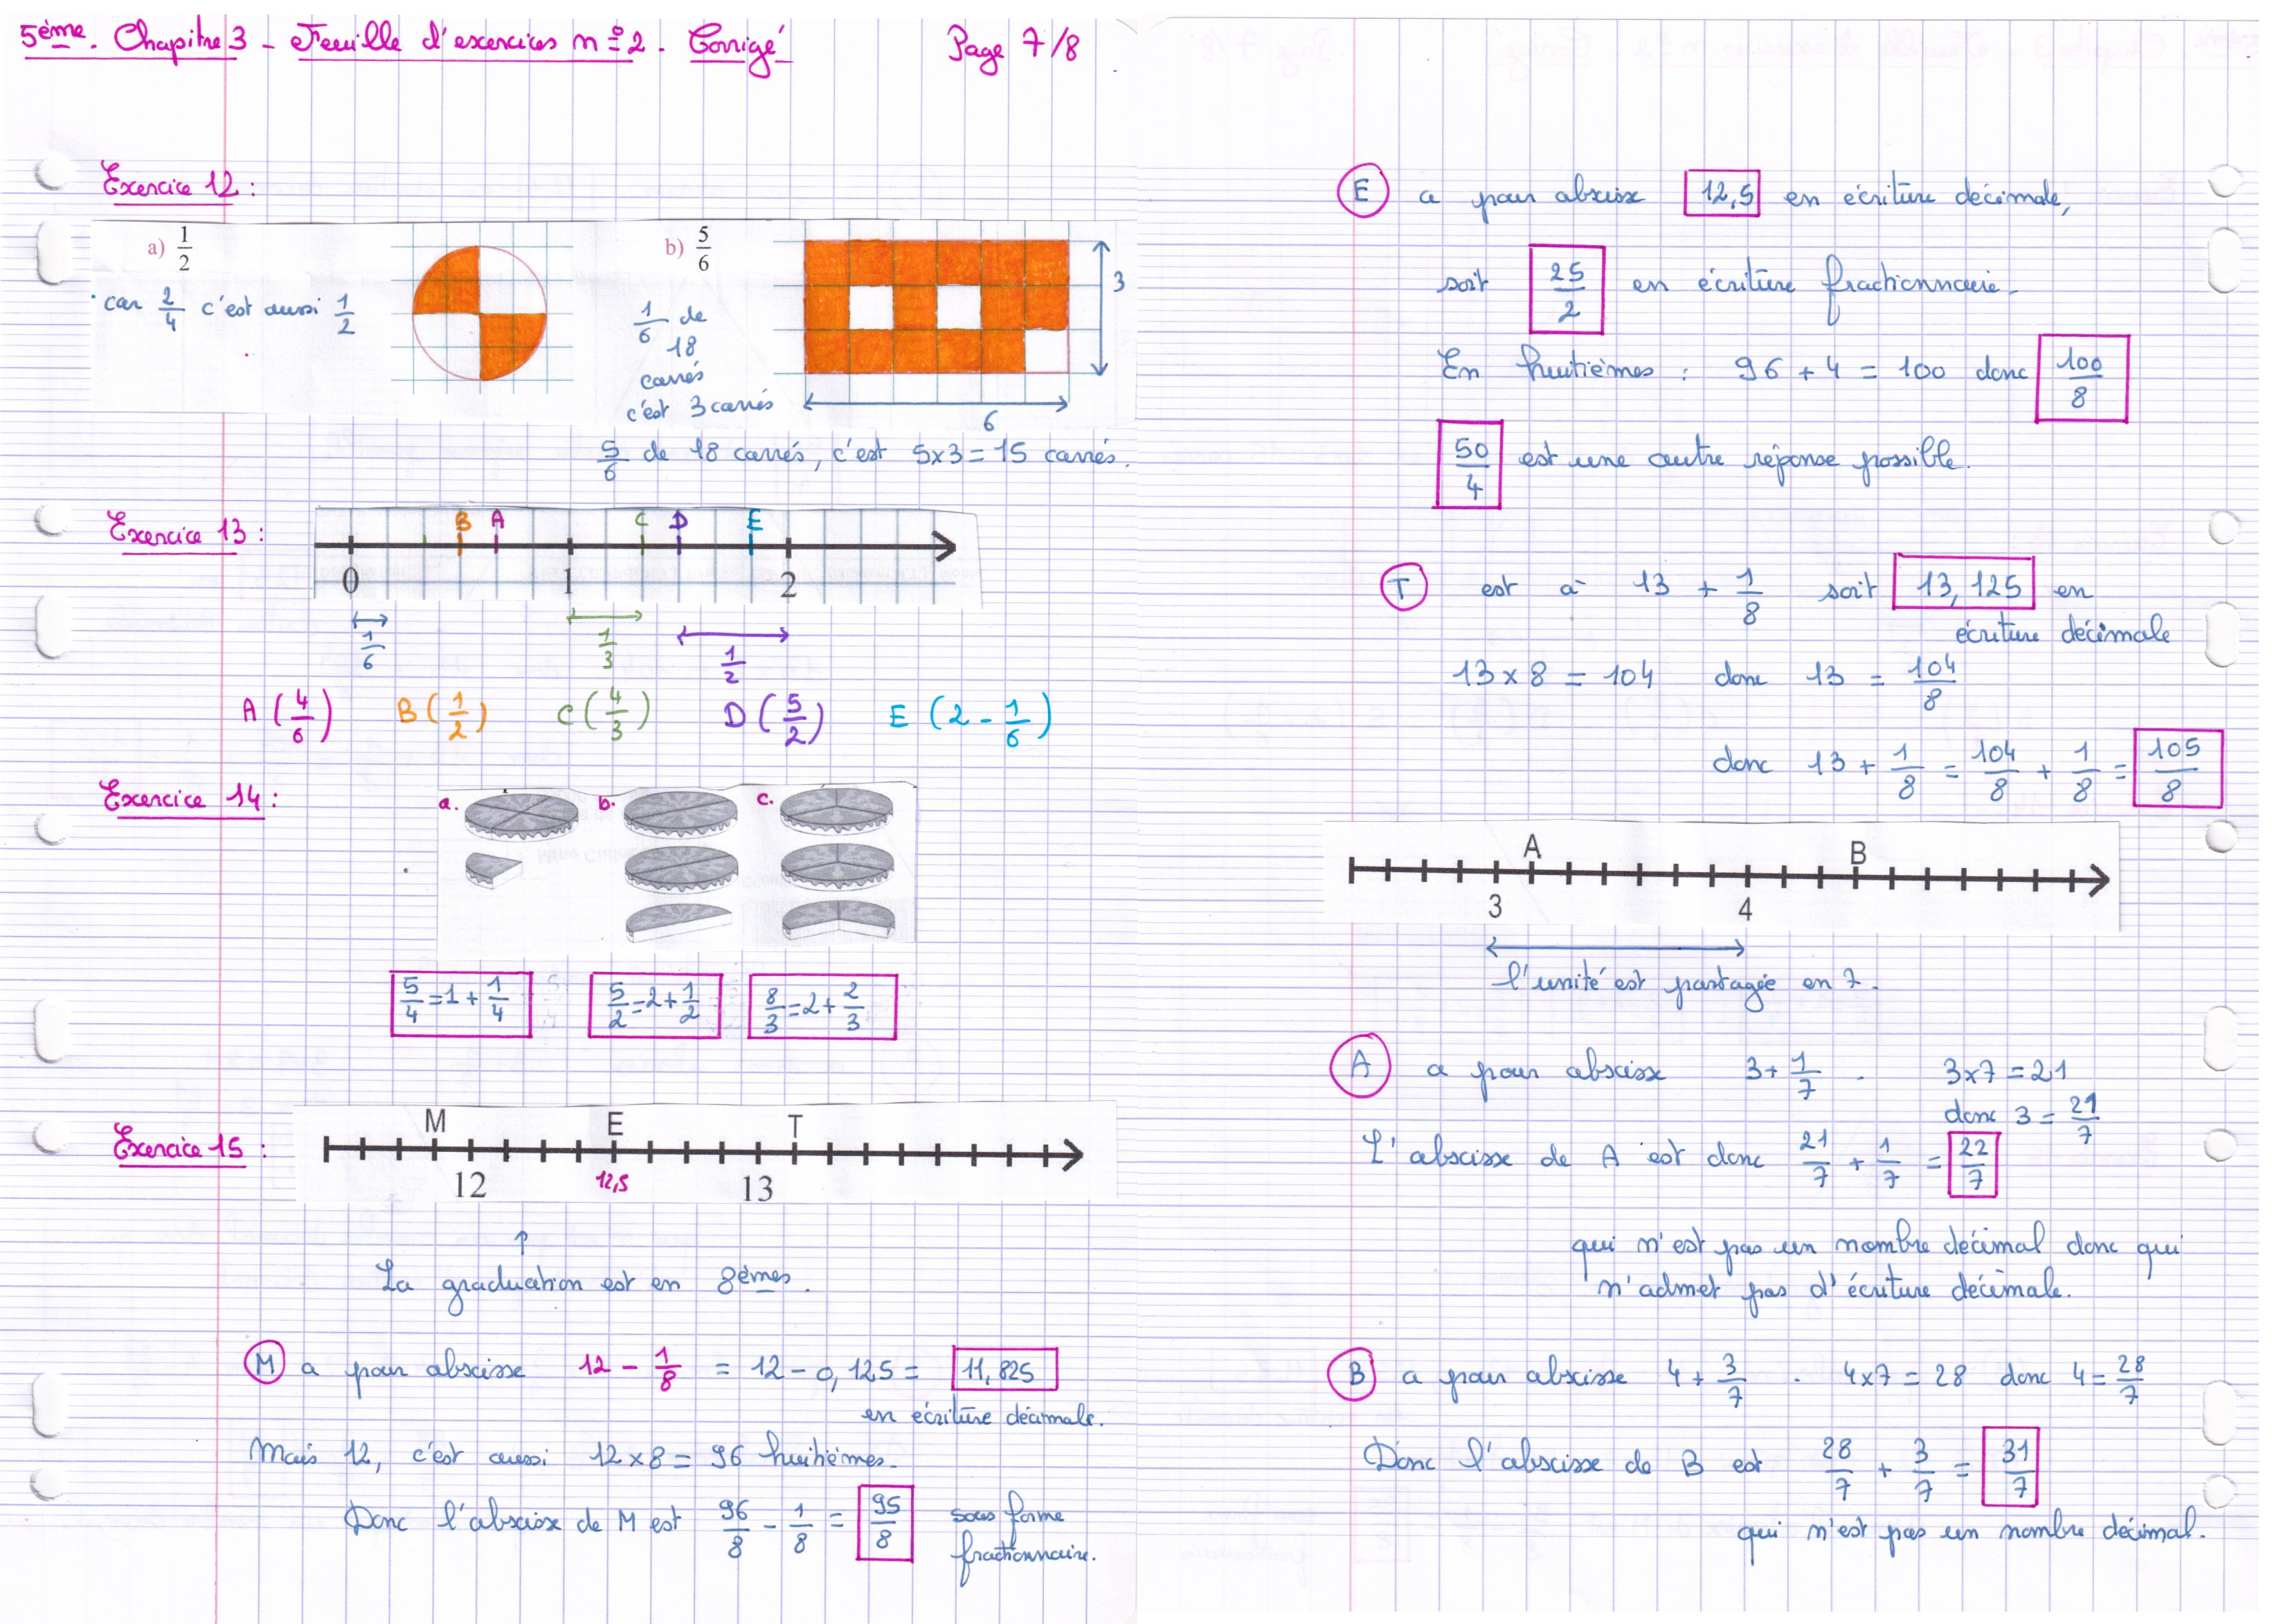 5ème. Chapitre 3 - Feuille d'exercices n°2 - Corrigé Page 7/8
Exercice 12 :
a) 1/2
car 2/4 c'est aussi 1/2
b) 5/6
1/6 de
18
carrés
c'est 3 carrés
3
6
5/6 de 18 carrés, c'est 5x3=15 carrés.
Exercice 13 :
B A C D E
0 1 2
1/6 1/3 1/2
A(4/6) B(1/2) C(4/3) D(5/2) E(2-1/6)
Exercice 14 :
a. b. c.
5/4=1+1/4 5/2=2+1/2 8/3=2+2/3
Exercice 15 :
M E T
12 12,5 13
↑
La graduation est en 8èmes.
M a pour abscisse 12 - 1/8 = 12 - 0,125 = 11,825
en écriture décimale.
Mais 12, c'est aussi 12x8= 96 huitièmes.
Donc l'abscisse de M est 96/8 - 1/8 = 95/8 sous forme
fractionnaire.
E a pour abscisse 12,5 en écriture décimale,
soit 25/2 en écriture fractionnaire.
En huitièmes : 96 + 4 = 100 donc 100/8
50/4 est une autre réponse possible.
T est à 13 + 1/8 soit 13,125 en
écriture décimale
13 x 8 = 104 donc 13 = 104/8
donc 13 + 1/8 = 104/8 + 1/8 = 105/8
A B
3 4
l'unité est partagée en 7.
A a pour abscisse 3+1/7. 3x7=21
donc 3 = 21/7
L'abscisse de A est donc 21/7 + 1/7 = 22/7
qui n'est pas un nombre décimal donc qui
n'admet pas d'écriture décimale.
B a pour abscisse 4 + 3/7. 4x7 = 28 donc 4=28/7
Donc l'abscisse de B est 28/7 + 3/7 = 31/7
qui n'est pas un nombre décimal.